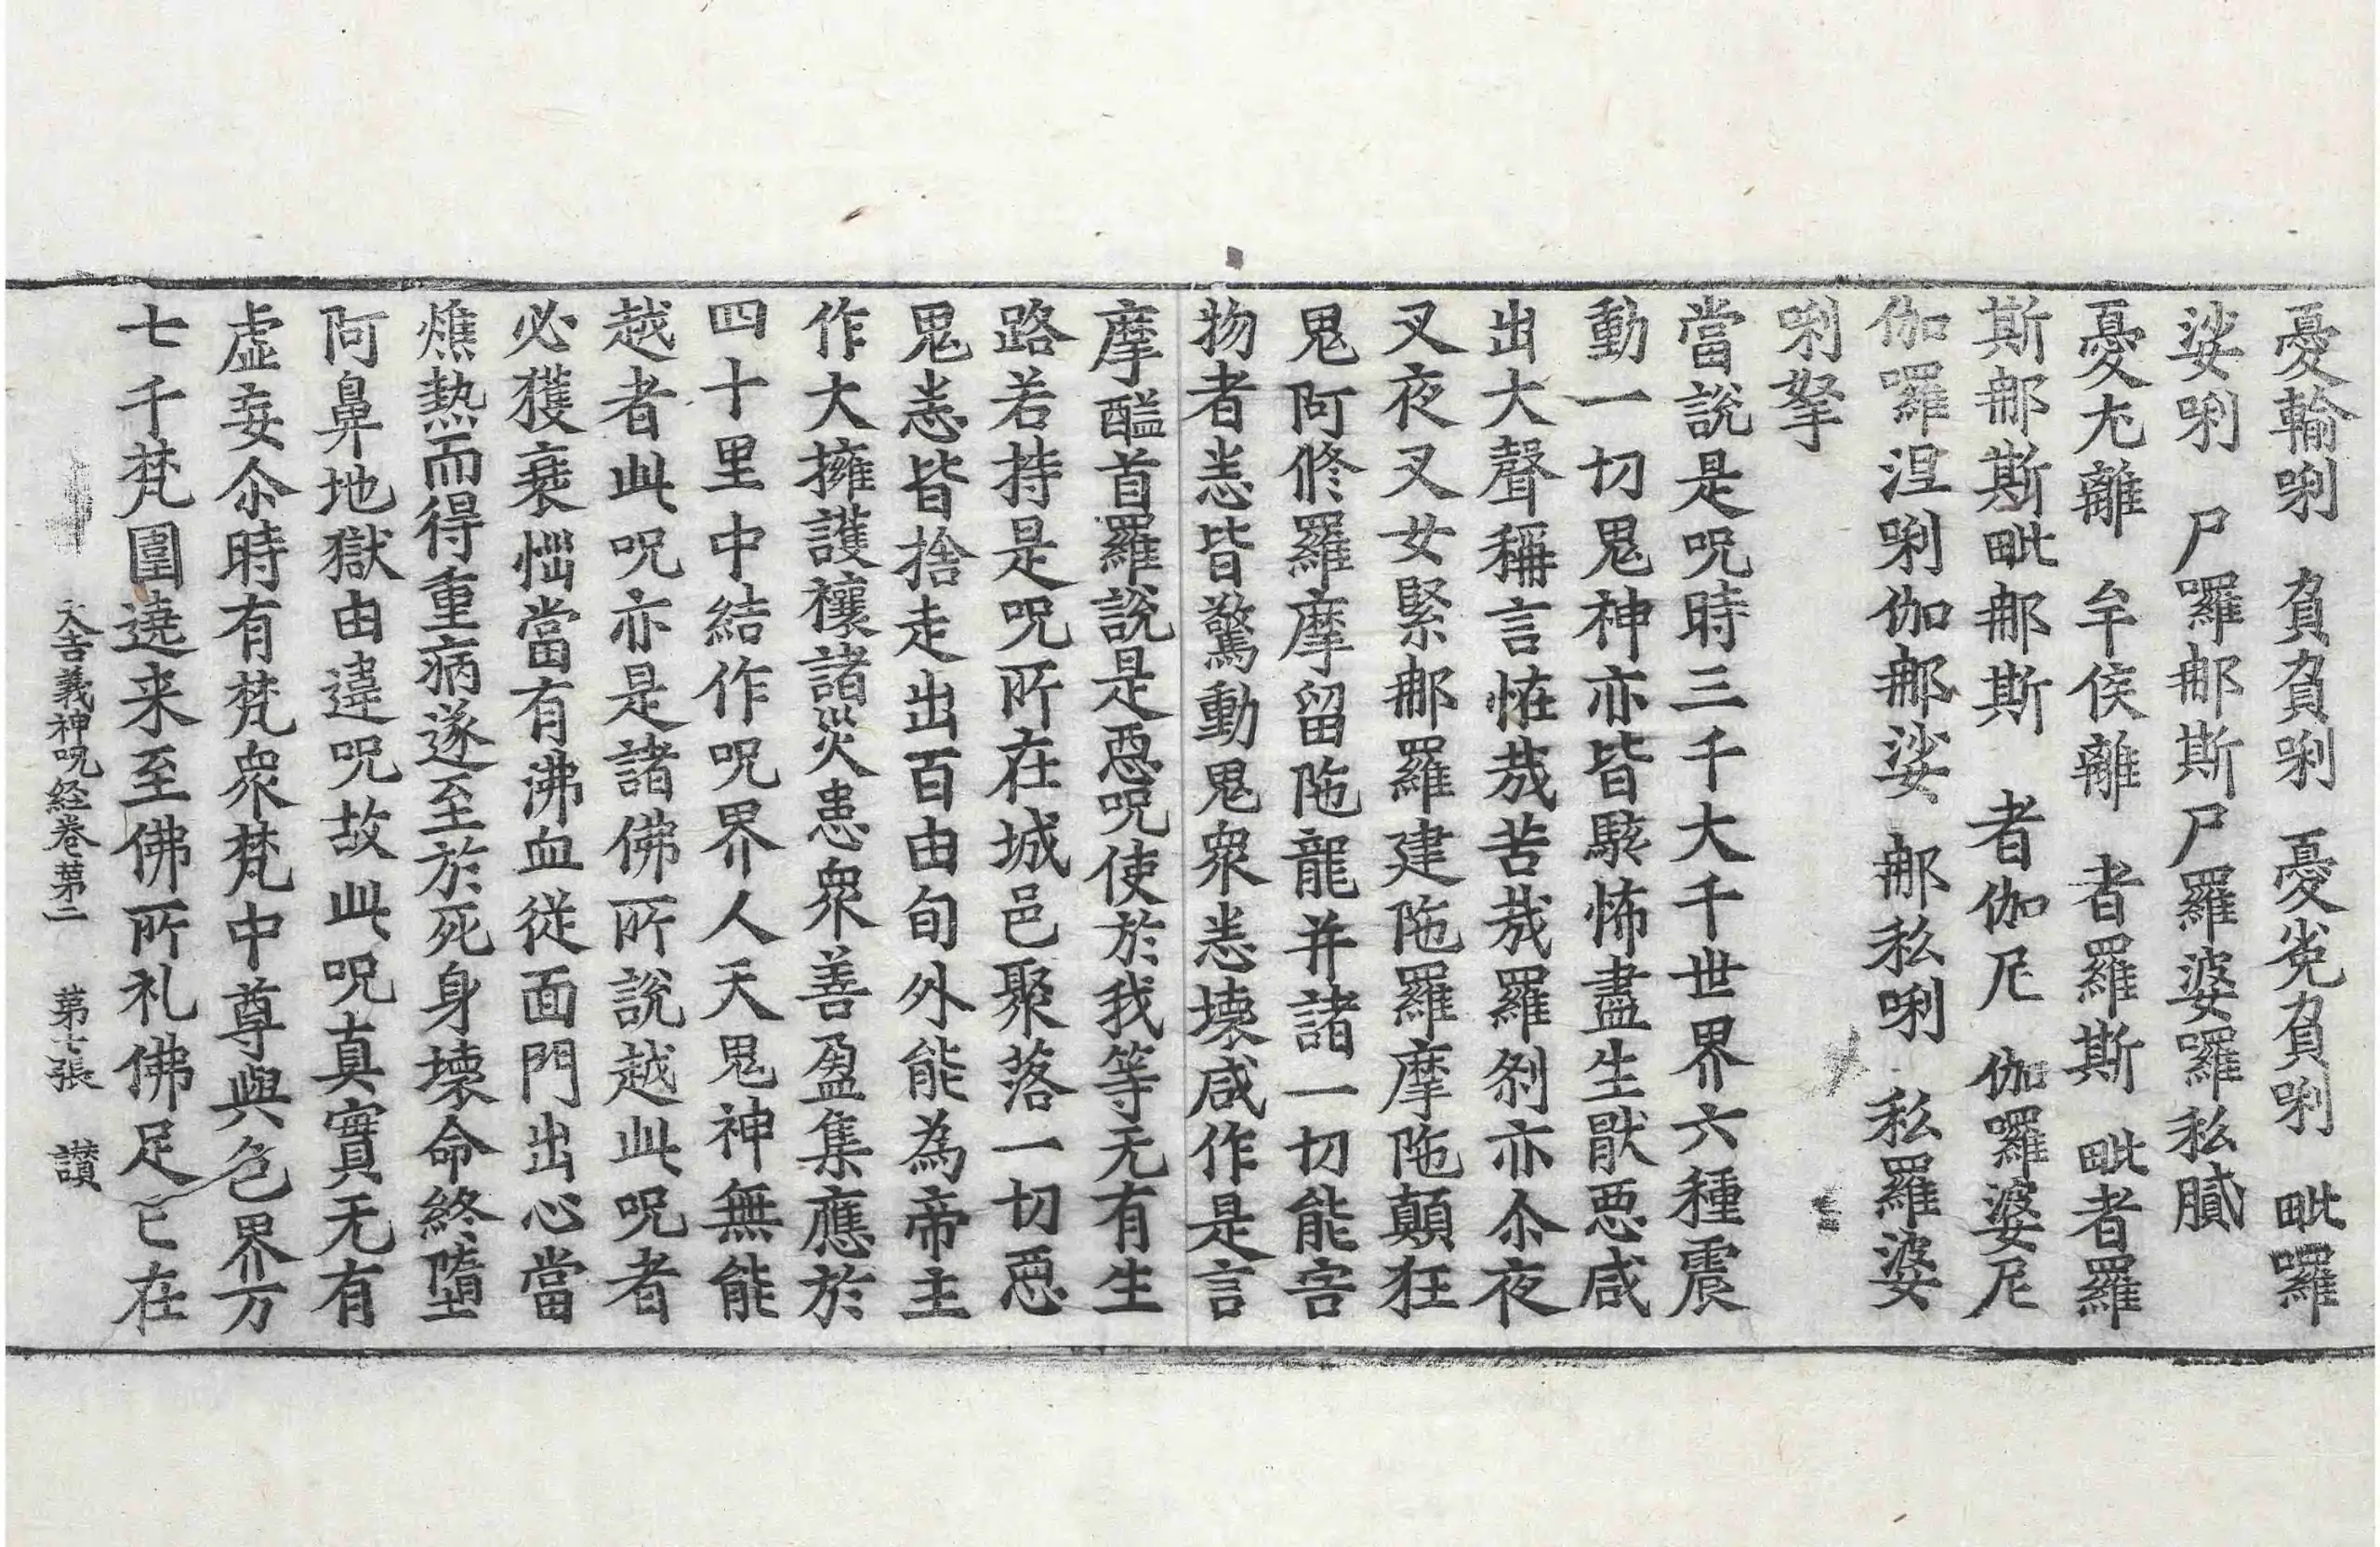 憂輸唎　負負唎　憂㝹負唎　毗囉
娑唎　尸囉那斯尸羅婆囉私膩
憂尢離　牟侯離　者羅斯　毗者羅
斯那斯毗那斯　者伽尼　伽囉婆尼
伽囉涅唎伽那娑　那私唎　私羅婆
唎拏
當說是呪時三千大千世界六種震
動一切鬼神亦皆駭怖盡生猒惡咸
出大聲稱言恠㦲苦㦲羅剎亦尒夜
叉夜叉女緊那羅建陁羅摩陁顛狂
鬼阿脩羅摩留陁龍并諸一切能害
物者恙皆驚動鬼衆恙壞咸作是言
摩醯首羅說是惡呪使於我等无有生
路若持是呪所在城邑聚落一切惡
鬼恙皆捨走出百由旬外能為帝主
作大擁護禳諸災患衆善盈集應於
四十里中結作呪界人天鬼神無能
越者此呪亦是諸佛所說越此呪者
必獲衰惱當有沸血從面門出心當
燋熱而得重病遂至於死身壞命終墮
阿鼻地獄由違呪故此呪真實无有
虛妄尒時有梵衆梵中尊與色界万
七千梵圍遶来至佛所礼佛足已在
大吉義神呪経卷苐二　苐七張　讃